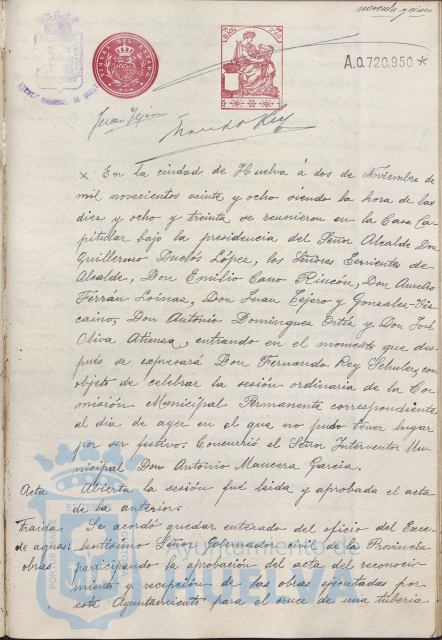 noventa y cinco
A.0.720,950*
Juan Tejero
Fernando Rey
x En la ciudad de Huelva á dos de Noviembre de
mil novecientos veinte y ocho siendo la hora de las
diez y ocho y treinta se reunieron en la Casa Ca-
pitular bajo la presidencia del Señor Alcalde Don
Guillermo Duclós López, los Señores Tenientes de
Alcalde, Don Emilio Cano Rincón, Don Aurelio
Ferrán Loinaz, Don Juan Tejero y Gonzalez-Viz-
caino, Don Antonio Dominguez Ortiz y Don José
Oliva Atienza, entrando en el momento que des-
pués se expresará Don Fernando Rey Schuler, con
objeto de celebrar la sesión ordinaria de la Co-
misión Municipal Permanente correspondiente
al dia de ayer en el que no pudo tener lugar
por ser festivo. Concurrió el Señor Interventor Mu-
nicipal Don Antonio Mancera García.
Acta Abierta la sesión fué leida y aprobada el acta
de la anterior.
Traida Se acordó quedar enterado del oficio del Exce-
de aguas: lentísimo Señor Gobernador civil de la Provincia
obras participando la aprobación del acta del reconoci-
miento y recepción de las obras ejecutadas por
este Ayuntamiento para el cruce de una tuberia
Ayuntamiento de
HUELVA